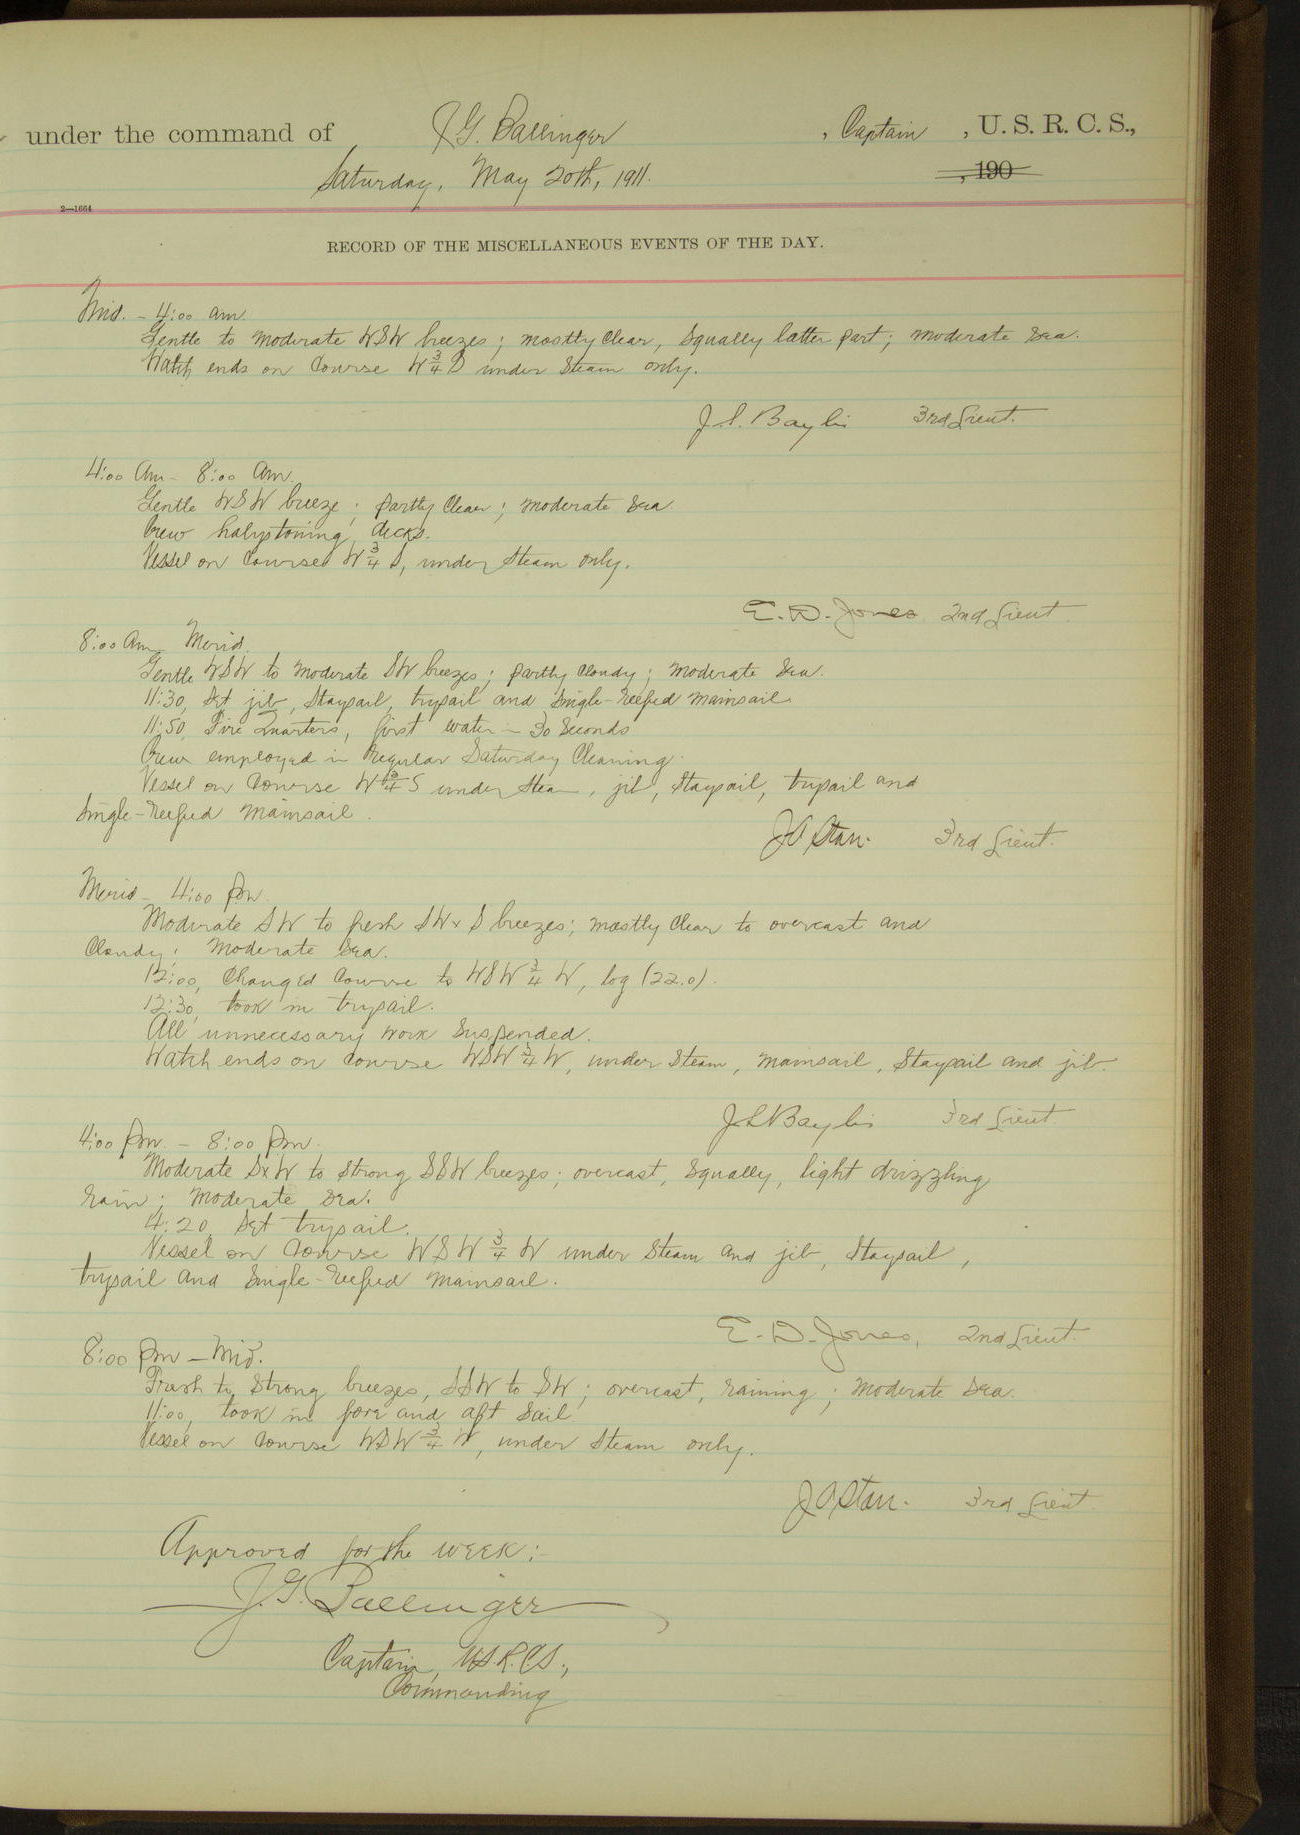 under the command of J.G. Ballinger, Captain, U. S. R. C. S.,
Saturday, May 20th, 1911. , 190
2—1664
RECORD OF THE MISCELLANEOUS EVENTS OF THE DAY.
Mid. - 4:00 am.
Gentle to moderate WSW breezes; mostly clear, squally latter part; moderate sea.
Watch ends on course W 3/4 S under steam only.
J. L. Baylis 3rd Lieut.
4:00 Am - 8:00 Am.
Gentle WSW breeze; partly clear; moderate sea.
Crew holystoning decks.
Vessel on course W 3/4 S, under steam only.
E. D. Jones 2nd Lieut.
8:00 Am Merid.
Gentle WSW to moderate SW breezes; partly cloudy; moderate sea.
11:30, Set jib, staysail, trysail and single-reefed mainsail.
11:50 Fire Quarters, first water - 30 seconds
Crew employed in regular Saturday cleaning.
Vessel on course W 3/4 S under steam, jib, staysail, trysail and
single-reefed mainsail.
3rd Lieut.
Merid - 4:00 pm.
Moderate SW to fresh SWxS breezes; mostly clear to overcast and
cloudy; moderate sea.
12:00, Changed course to WSW 3/4 W, log (22.0).
12:30, took in trysail.
All unnecessary work suspended.
Watch ends on course WSW 3/4 W, under steam, mainsail, staysail and jib.
J L Baylis 3rd Lieut.
4:00 pm. - 8:00 pm.
Moderate SxW to strong SSW breezes; overcast, squally, light drizzling
rain; moderate sea.
4:20 Set trysail.
Vessel on course WSW 3/4 W under steam and jib, staysail,
trysail and single-reefed mainsail.
E. D. Jones, 2nd Lieut.
8:00 pm - Mid.
Fresh to strong breezes, SSW to SW; overcast, raining; moderate sea.
11:00, took in fore and aft sail
Vessel on course WSW 3/4 W, under steam only.
3rd Lieut.
Approved for the week:-
J. G. Ballinger
Captain, U.S.R.C.S.,
Commanding